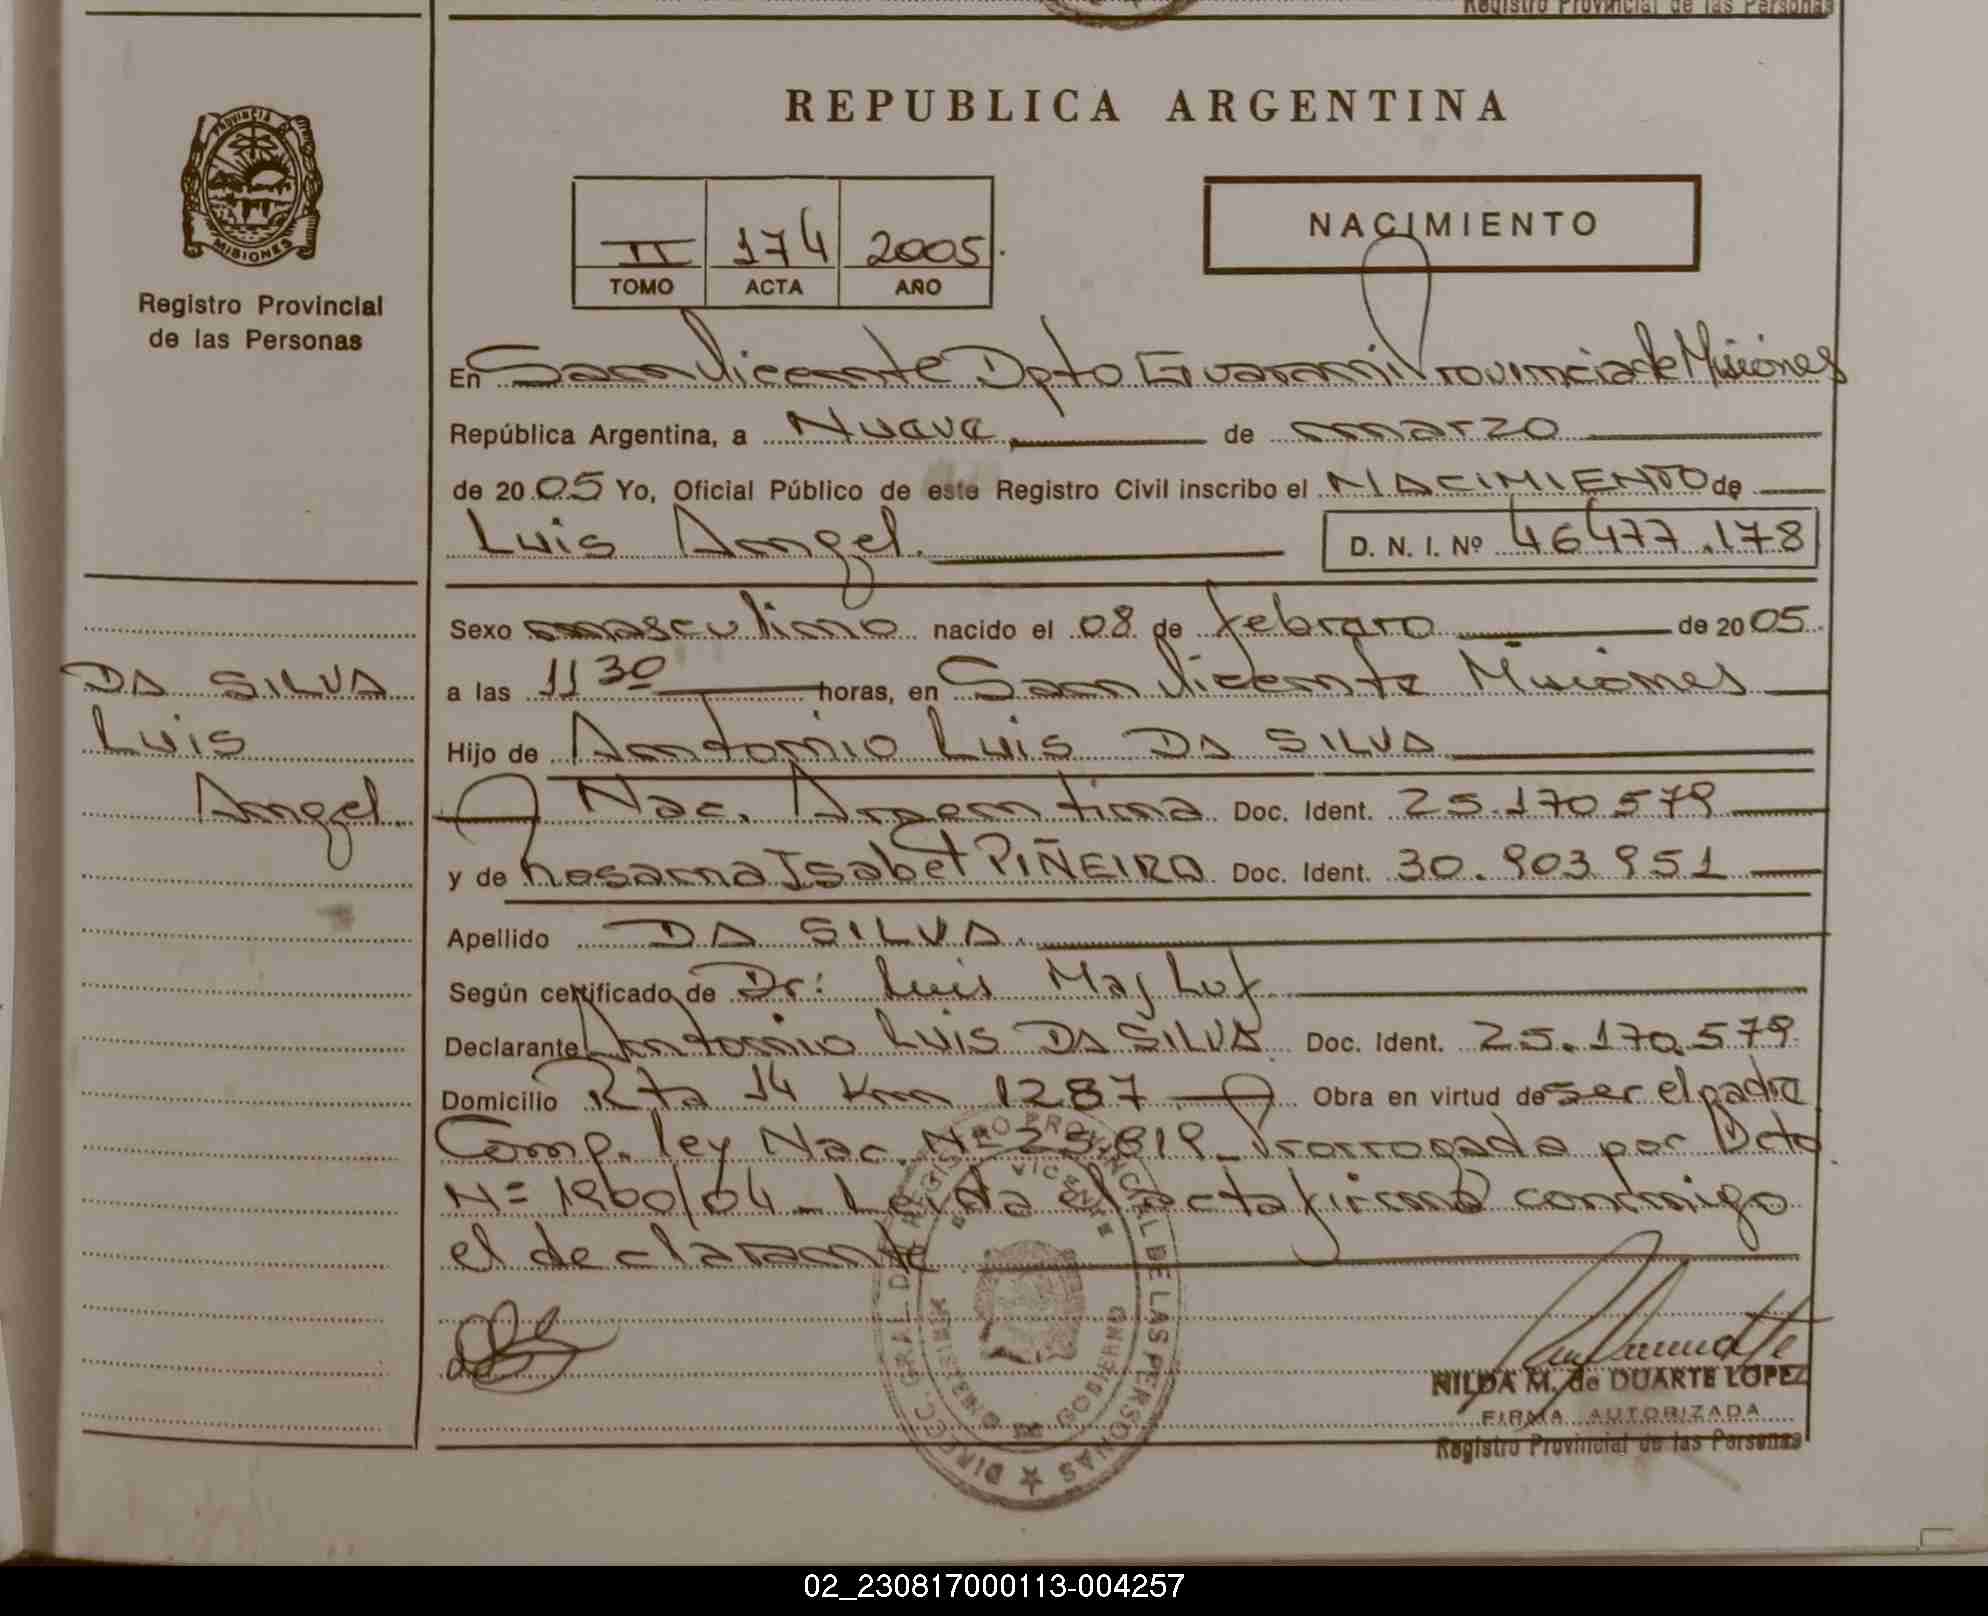 Registro Provincial de las Personas
PROVINCIA DE
MISIONES
Registro Provincial
de las Personas
REPUBLICA ARGENTINA
II 174 2005
TOMO ACTA AÑO
NACIMIENTO
En San Vicente Dpto Guarani Provincia de Misiones
República Argentina, a Nueve de marzo
de 2005 Yo, Oficial Público de este Registro Civil inscribo el NACIMIENTO de
Luis Angel. D. N. I. Nº 46477.178
Sexo masculino nacido el 08 de febrero de 2005.
DA SILVA
Luis
Angel.
a las 11 30 horas, en San Vicente Misiones
Hijo de Antonio Luis DA SILVA
Nac. Argentina Doc. Ident. 25.170.579
y de Rosana Isabel PIÑEIRO Doc. Ident. 30.903.951
Apellido DA SILVA.
Según certificado de Dr: Luis Majluf
Declarante Antonio Luis DA SILVA Doc. Ident. 25.170.579
Domicilio Rta 14 Km 1287 Obra en virtud de ser el padre
Comp. ley Nac. Nº 25.819 Prorrogada por Dcto
Nº 1960/04 _ Leida el acta firma conmigo
el declarante
DIRECC. GRAL. DEL REGISTRO PROVINCIAL DE LAS PERSONAS
VICENTE
GOBIERNO
NILDA M. de DUARTE LOPEZ
FIRMA AUTORIZADA
Registro Provincial de las Personas
02_230817000113-004257